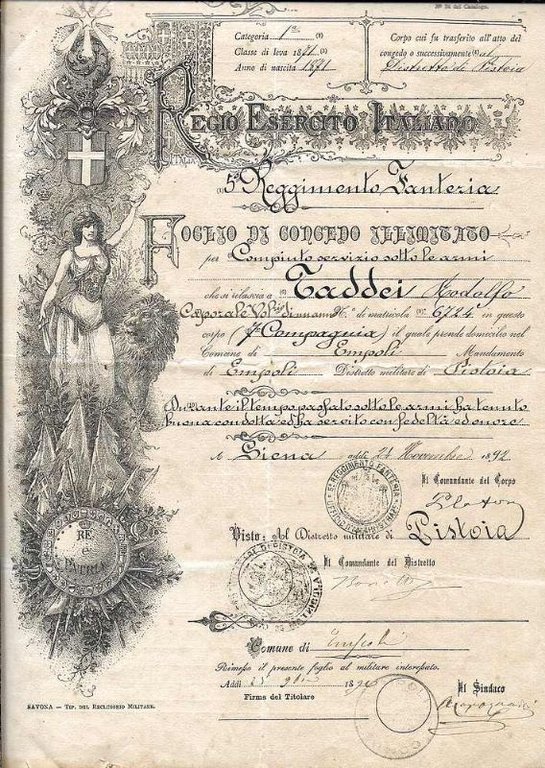 N° 24 del Catalogo.
Categoria 1ª (2)
Classe di leva 1871 (3)
Anno di nascita 1871
Corpo cui fu trasferito all'atto del
congedo o successivamente (4) al
Distretto di Pistoia
ITALIA
REGIO ESERCITO ITALIANO
(1) 5° Reggimento Fanteria
FOGLIO DI CONGEDO ILLIMITATO
per Compiuto servizio sotto le armi
che si rilascia a Taddei Rodolfo
Caporale N.° di matricola 6724 in questo
corpo (7ª Compagnia) il quale prende domicilio nel
Comune di Empoli Mandamento
di Empoli Distretto militare di Pistoia
Durante il tempo passato sotto le armi ha tenuto
buona condotta ed ha servito con fedeltà ed onore
A Siena addì 24 Novembre 1892
5° REGGIMENTO FANTERIA
Il Comandante del Corpo
Visto: Al Distretto militare di Pistoia
Il Comandante del Distretto
RE
E
PATRIA
Comune di Empoli
Rimesso il presente foglio al militare interessato.
Addì 189
Firma del Titolare
Il Sindaco
SAVONA — TIP. DEL RECLUSORIO MILITARE.